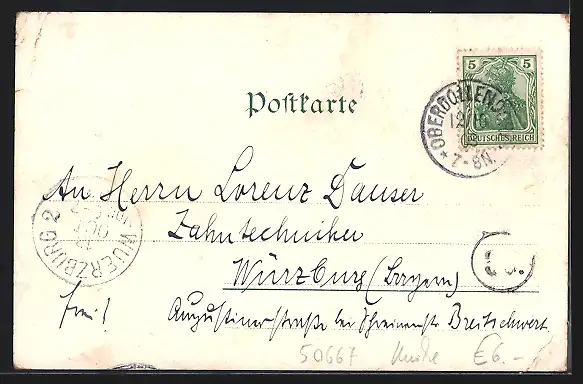 Postkarte
5 5
DEUTSCHES REICH
OBERDOLLEN
12 10
7-8N.
An Herrn Lorenz Dauser
Zahntechniker
WUERZBURG 2
Würzburg (Bayern)
frei!
Augustinerstraße bei Schreinermstr Breitschwert
50667 €6.-